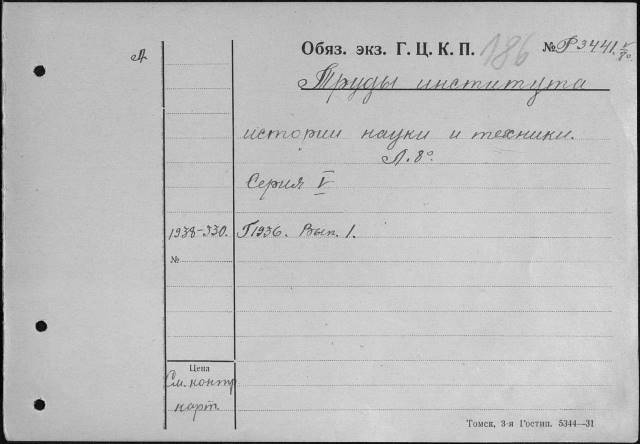 А
Обяз. экз. Г. Ц. К. П. 186 № Р3441. V/8°
Труды института
истории науки и техники.
Л. 8°.
Серия V
1938-330. Г1936. Вып. 1.
№
Цена
См. контр
карт.
Томск, 3-я Гостип. 5344—31